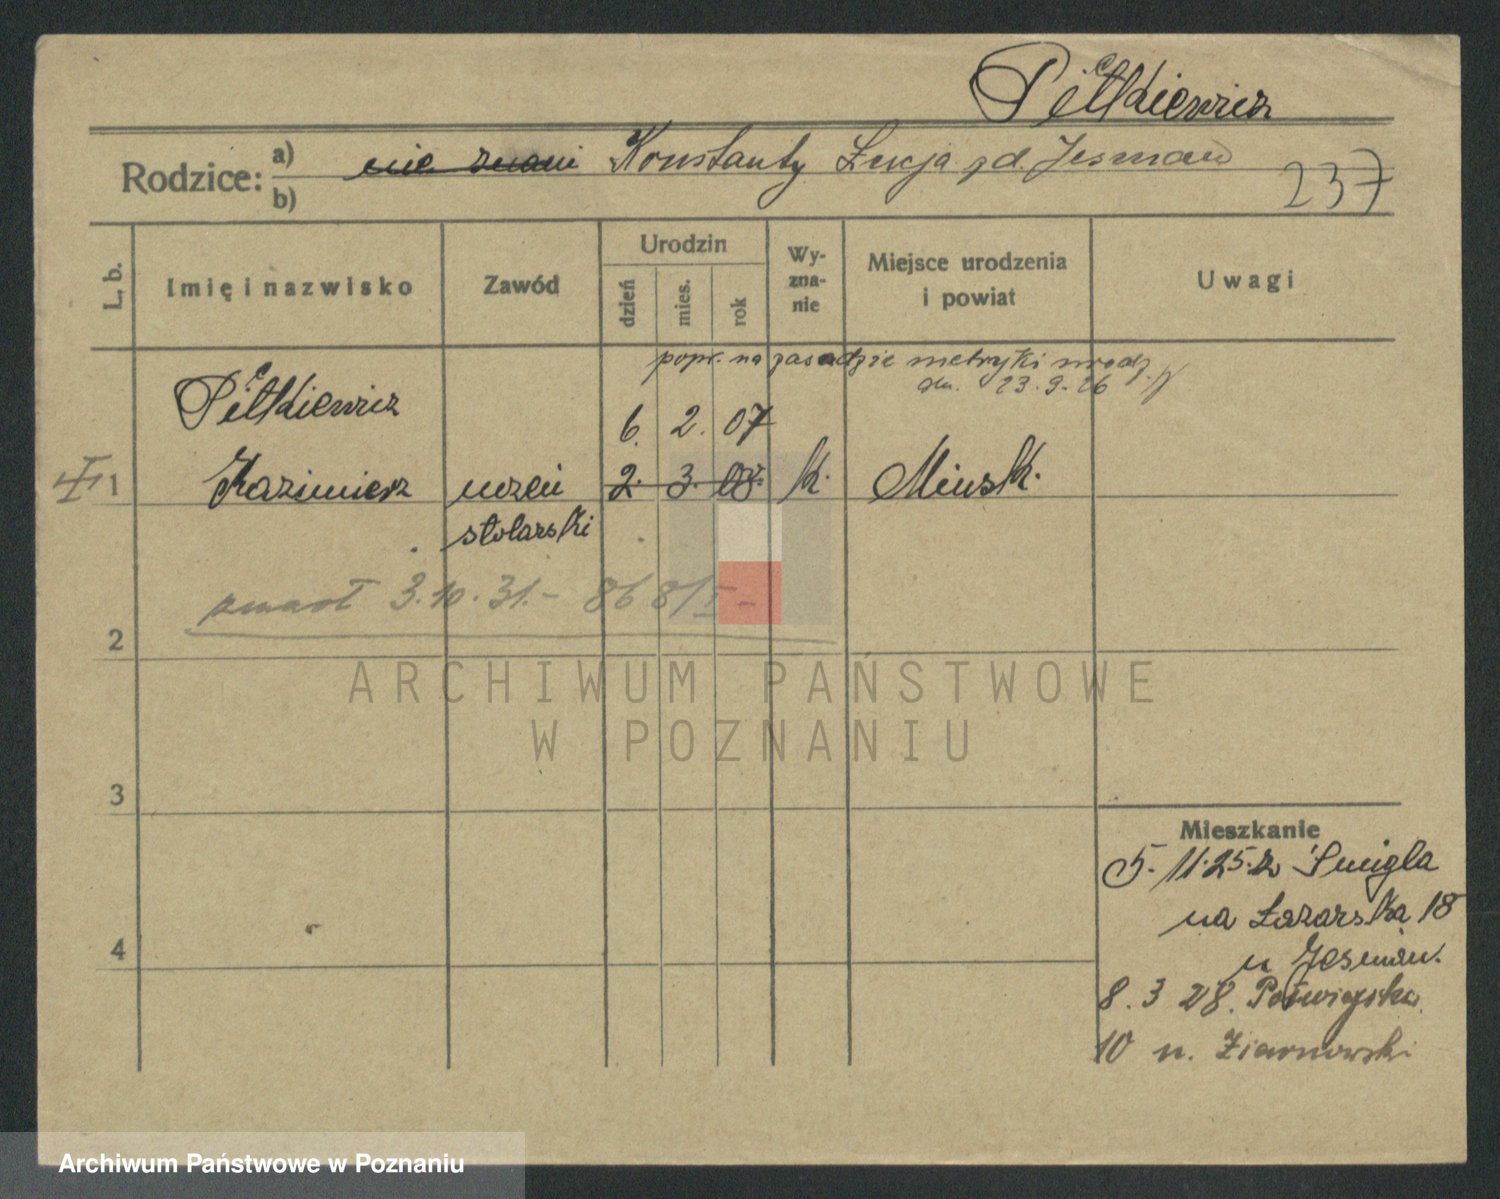 Pietkiewicz
Rodzice: a) ~~nie znani~~ Konstanty Łucja zd. Jesman
b)
237
L. b.
Imię i nazwisko
Zawód
Urodzin
dzień
mies.
rok
Wy-
zna-
nie
Miejsce urodzenia
i powiat
Uwagi
popr. na zasadzie metryki urodz.
dn. 23.9.26
Pietkiewicz
6. 2. 07
1 Kazimierz uczeń ~~2. 3. 08~~ k. Minsk.
stolarski
zmarł 3.10.31.- 868/I -
2
3
4
Mieszkanie
5.11.25. z Śmigla
na Łazarska 18
u Jesman.
8.3 28. Półwiejska
10 u. Ziarnowski
ARCHIWUM PAŃSTWOWE
W POZNANIU
Archiwum Państwowe w Poznaniu